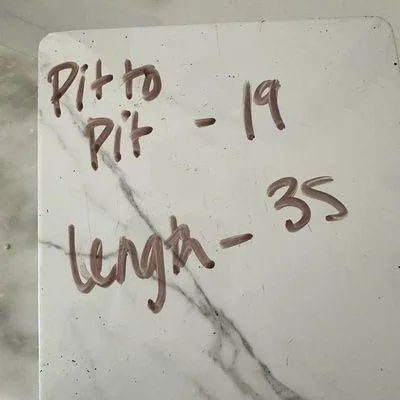 Pit to
Pit - 19
Length - 35